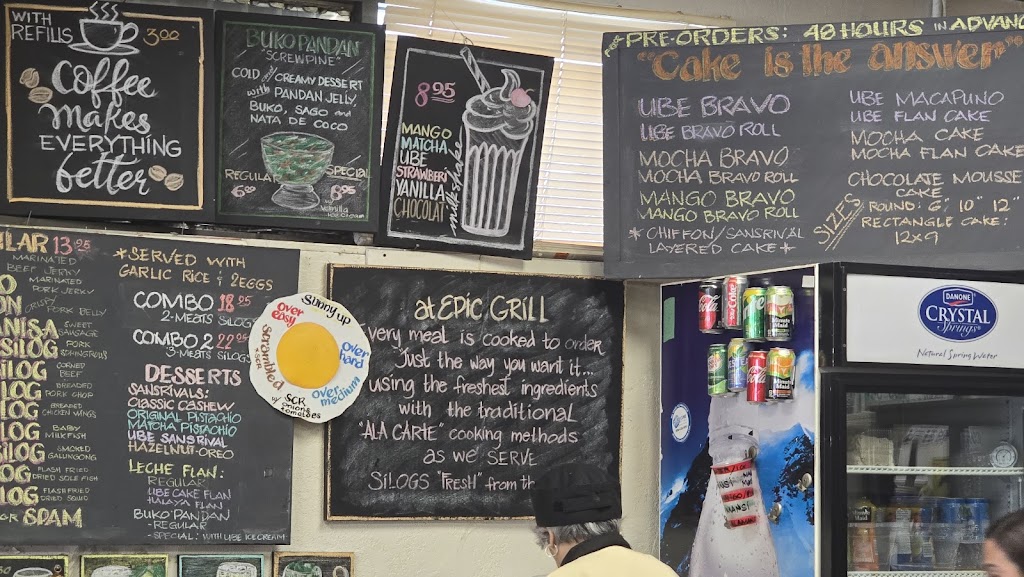 WITH
REFILLS
3.00
Coffee
makes
EVERYTHING
better
BUKO PANDAN
"SCREWPINE"
COLD and CREAMY DESSERT
with PANDAN JELLY,
BUKO, SAGO and
NATA DE COCO
REGULAR
SPECIAL
6.95
Vanilla
ice cream
8.95
MANGO
MATCHA
UBE
STRAWBERI
VANILLA
CHOCOLAT
milkshake
PRE-ORDERS: 48 HOURS IN ADVANC
"Cake is the answer"
UBE BRAVO
UBE BRAVO ROLL
MOCHA BRAVO
MOCHA BRAVO ROLL
MANGO BRAVO
MANGO BRAVO ROLL
* CHIFFON/SANSRIVAL
LAYERED CAKE +
UBE MACAPUNO
UBE FLAN CAKE
MOCHA CAKE
MOCHA FLAN CAKE
CHOCOLATE MOUSSE
CAKE
SIZES
ROUND: 6", 10" 12"
RECTANGLE CAKE:
12x9
LAR 13.95
MARINATED
BEEF JERKY
MARINATED
PORK JERKY
CRISPY
PORK BELLY
ANISA
SWEET
SAUSAGE
SILOG
PORK
SPRINGROLLS
SILOG
CORNED
BEEF
LOG
BREADED
PORK CHOP
LOG
BREADED
CHICKEN WINGS
LOG
BABY
MILKFISH
SILOG
SMOKED
GALUNGONG
OG
FLASH FRIED
DRIED SOLE FISH
LOG
FLASH FRIED
DRIED SQUID
OR SPAM
*SERVED WITH
GARLIC RICE & 2EGGS
COMBO 18.95
2-MEATS SILOGS
COMBO 2 22.95
3-MEATS SILOGS
DESSERTS
SANSRIVALS:
CLASSIC CASHEW
ORIGINAL PISTACHIO
MATCHA PISTACHIO
UBE SANSRIVAL
HAZELNUT-OREO
LECHE FLAN:
REGULAR
UBE CAKE FLAN
HALAYA FLAN
BUKO PANDAN
-REGULAR
-SPECIAL: WITH UBE ICECREAM
Sunny up
over
easy
over
hard
over
medium
scrambled
SCR
w/ onions &
tomatoes
at EPIC GRILL
very meal is cooked to order
Just the way you want it...
using the freshest ingredients
with the traditional
"ALA CARTE" cooking methods
as we SERVE
SILOGS "FRESH" from th
Coca-Cola
DANONE
CRYSTAL
Springs
Natural Spring Water